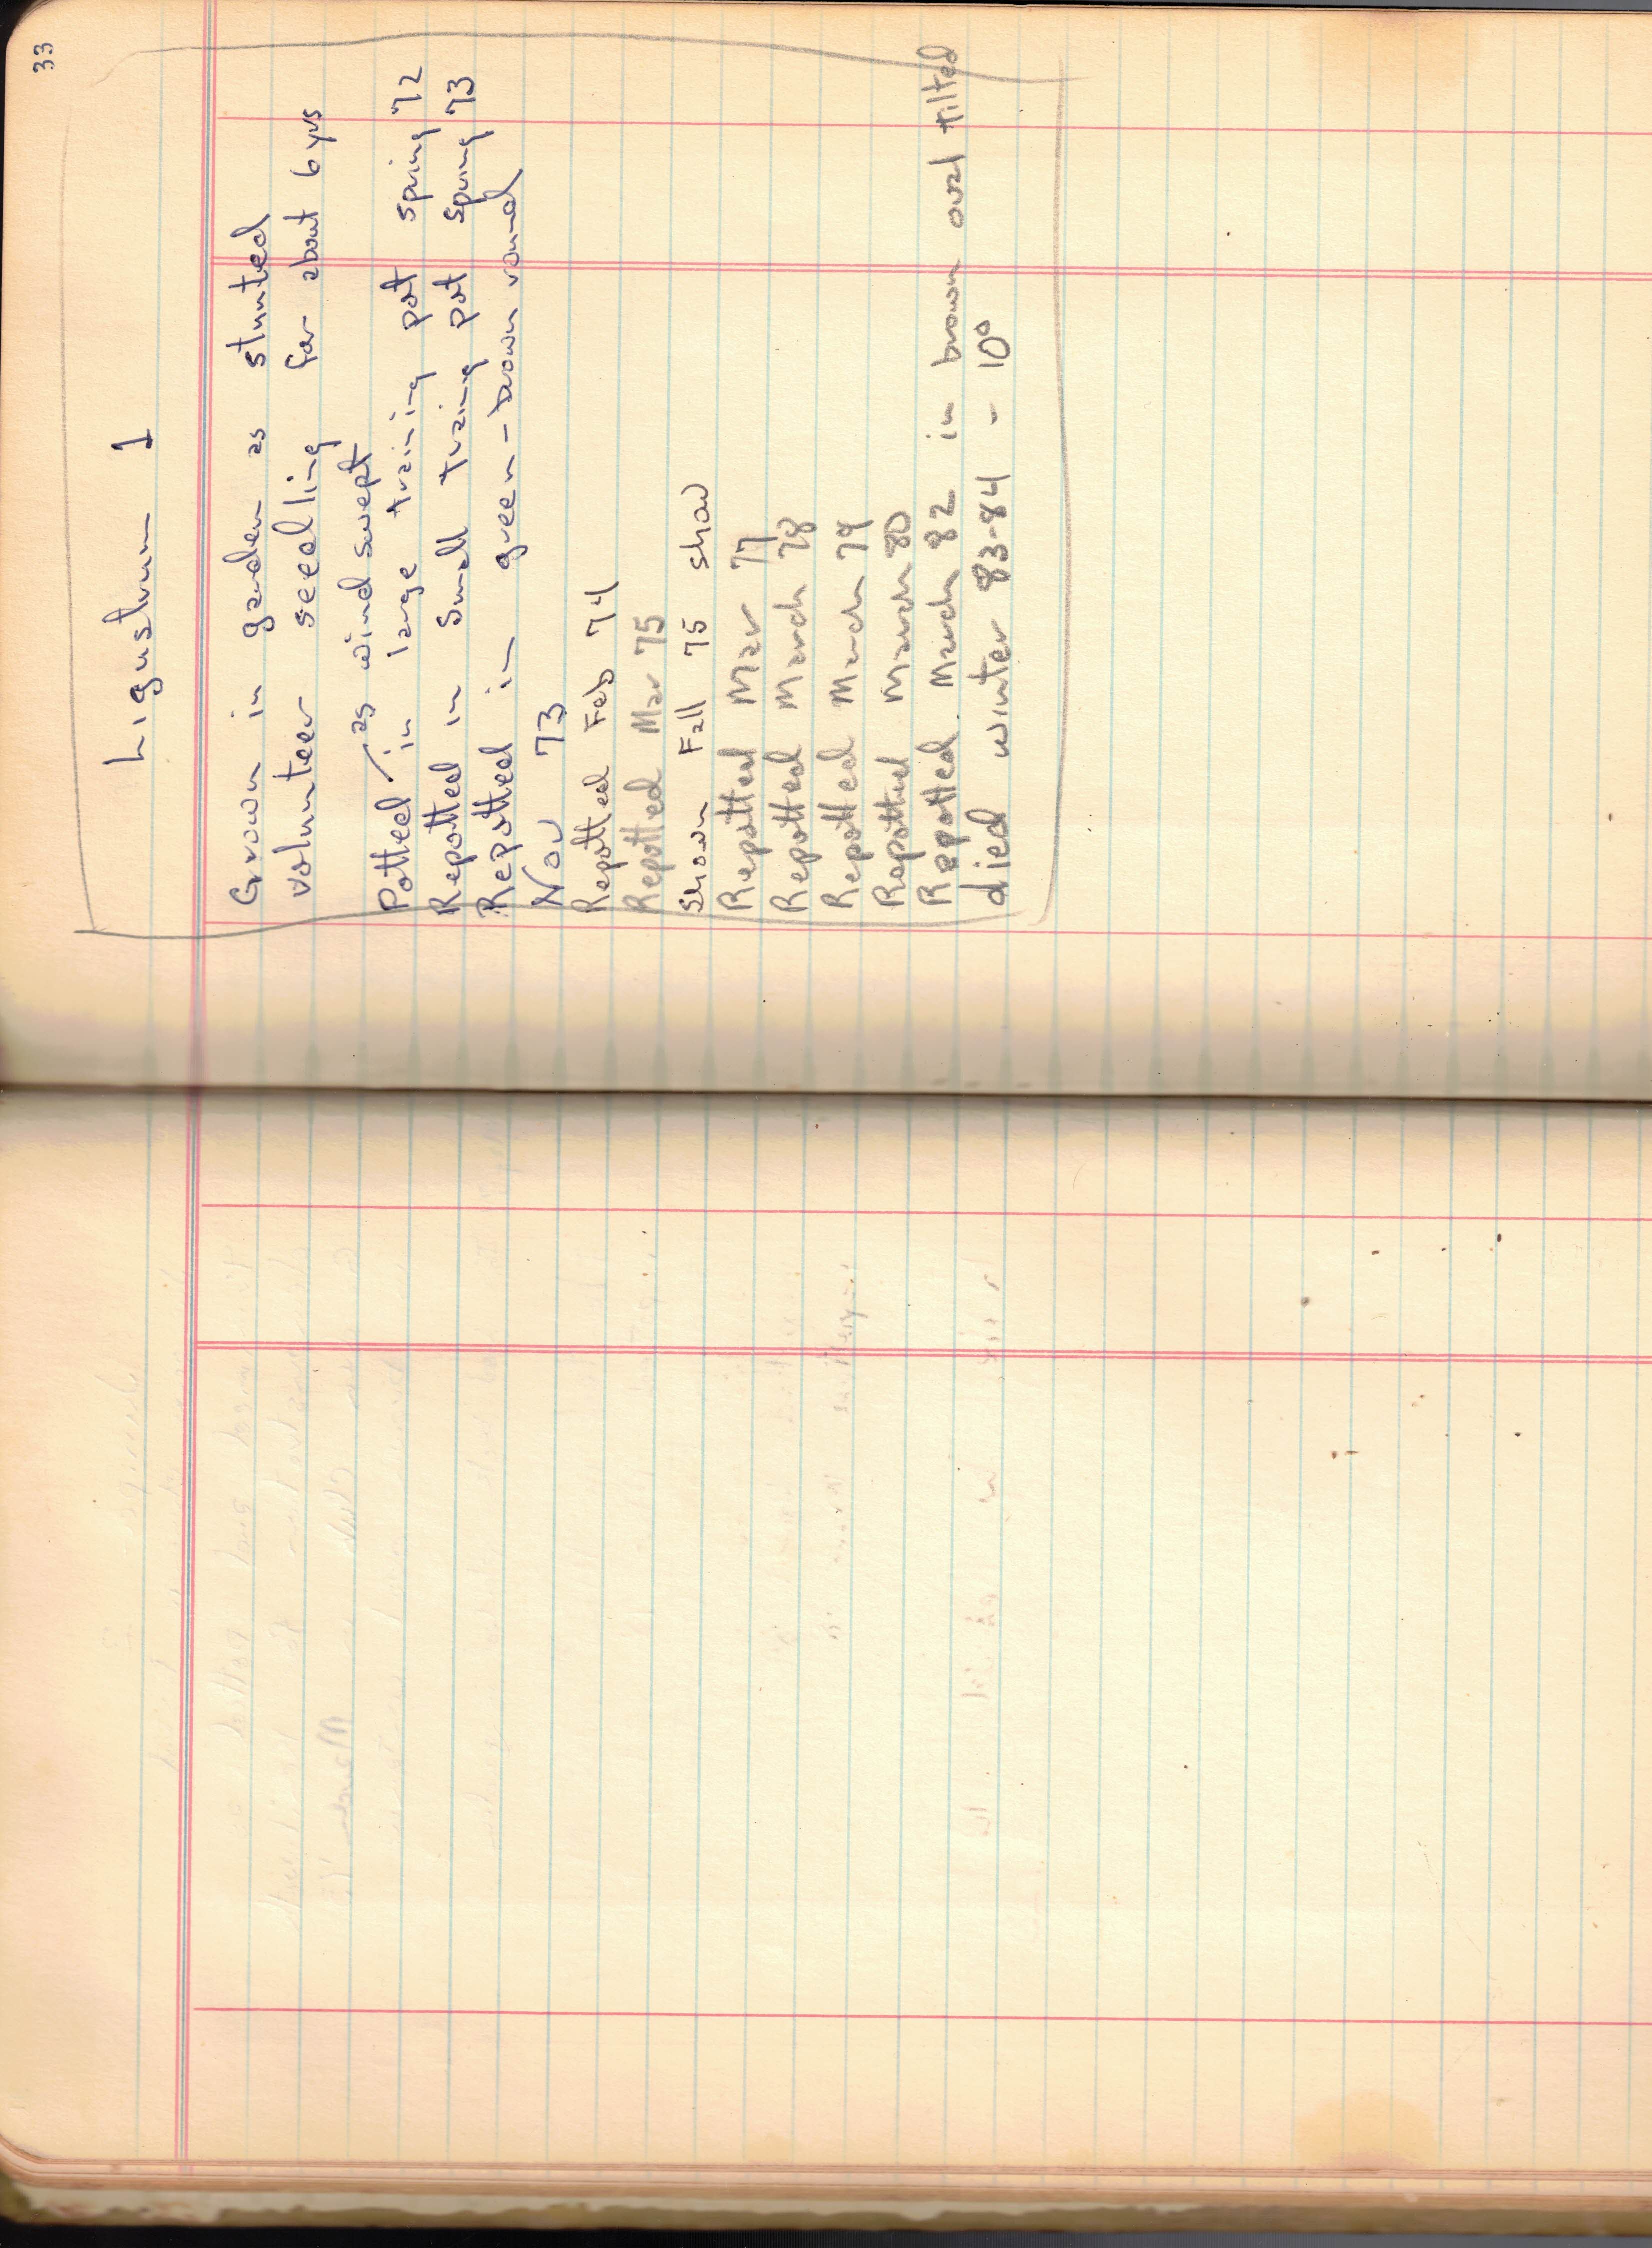 33
Ligustrum 1
Grown in garden as stunted
volunteer seedling for about 6 yrs
as wind swept
Potted in large training pot spring 72
Repotted in small traing pot spring 73
Repotted in green-brown round
Nov 73
Repotted Feb 74
Repotted Mar 75
Shown Fall 75 show
Repotted Mar 77
Repotted March 78
Repotted March 79
Repotted March 80
Repotted March 82 in brown oval tilted
died winter 83-84 - 10°